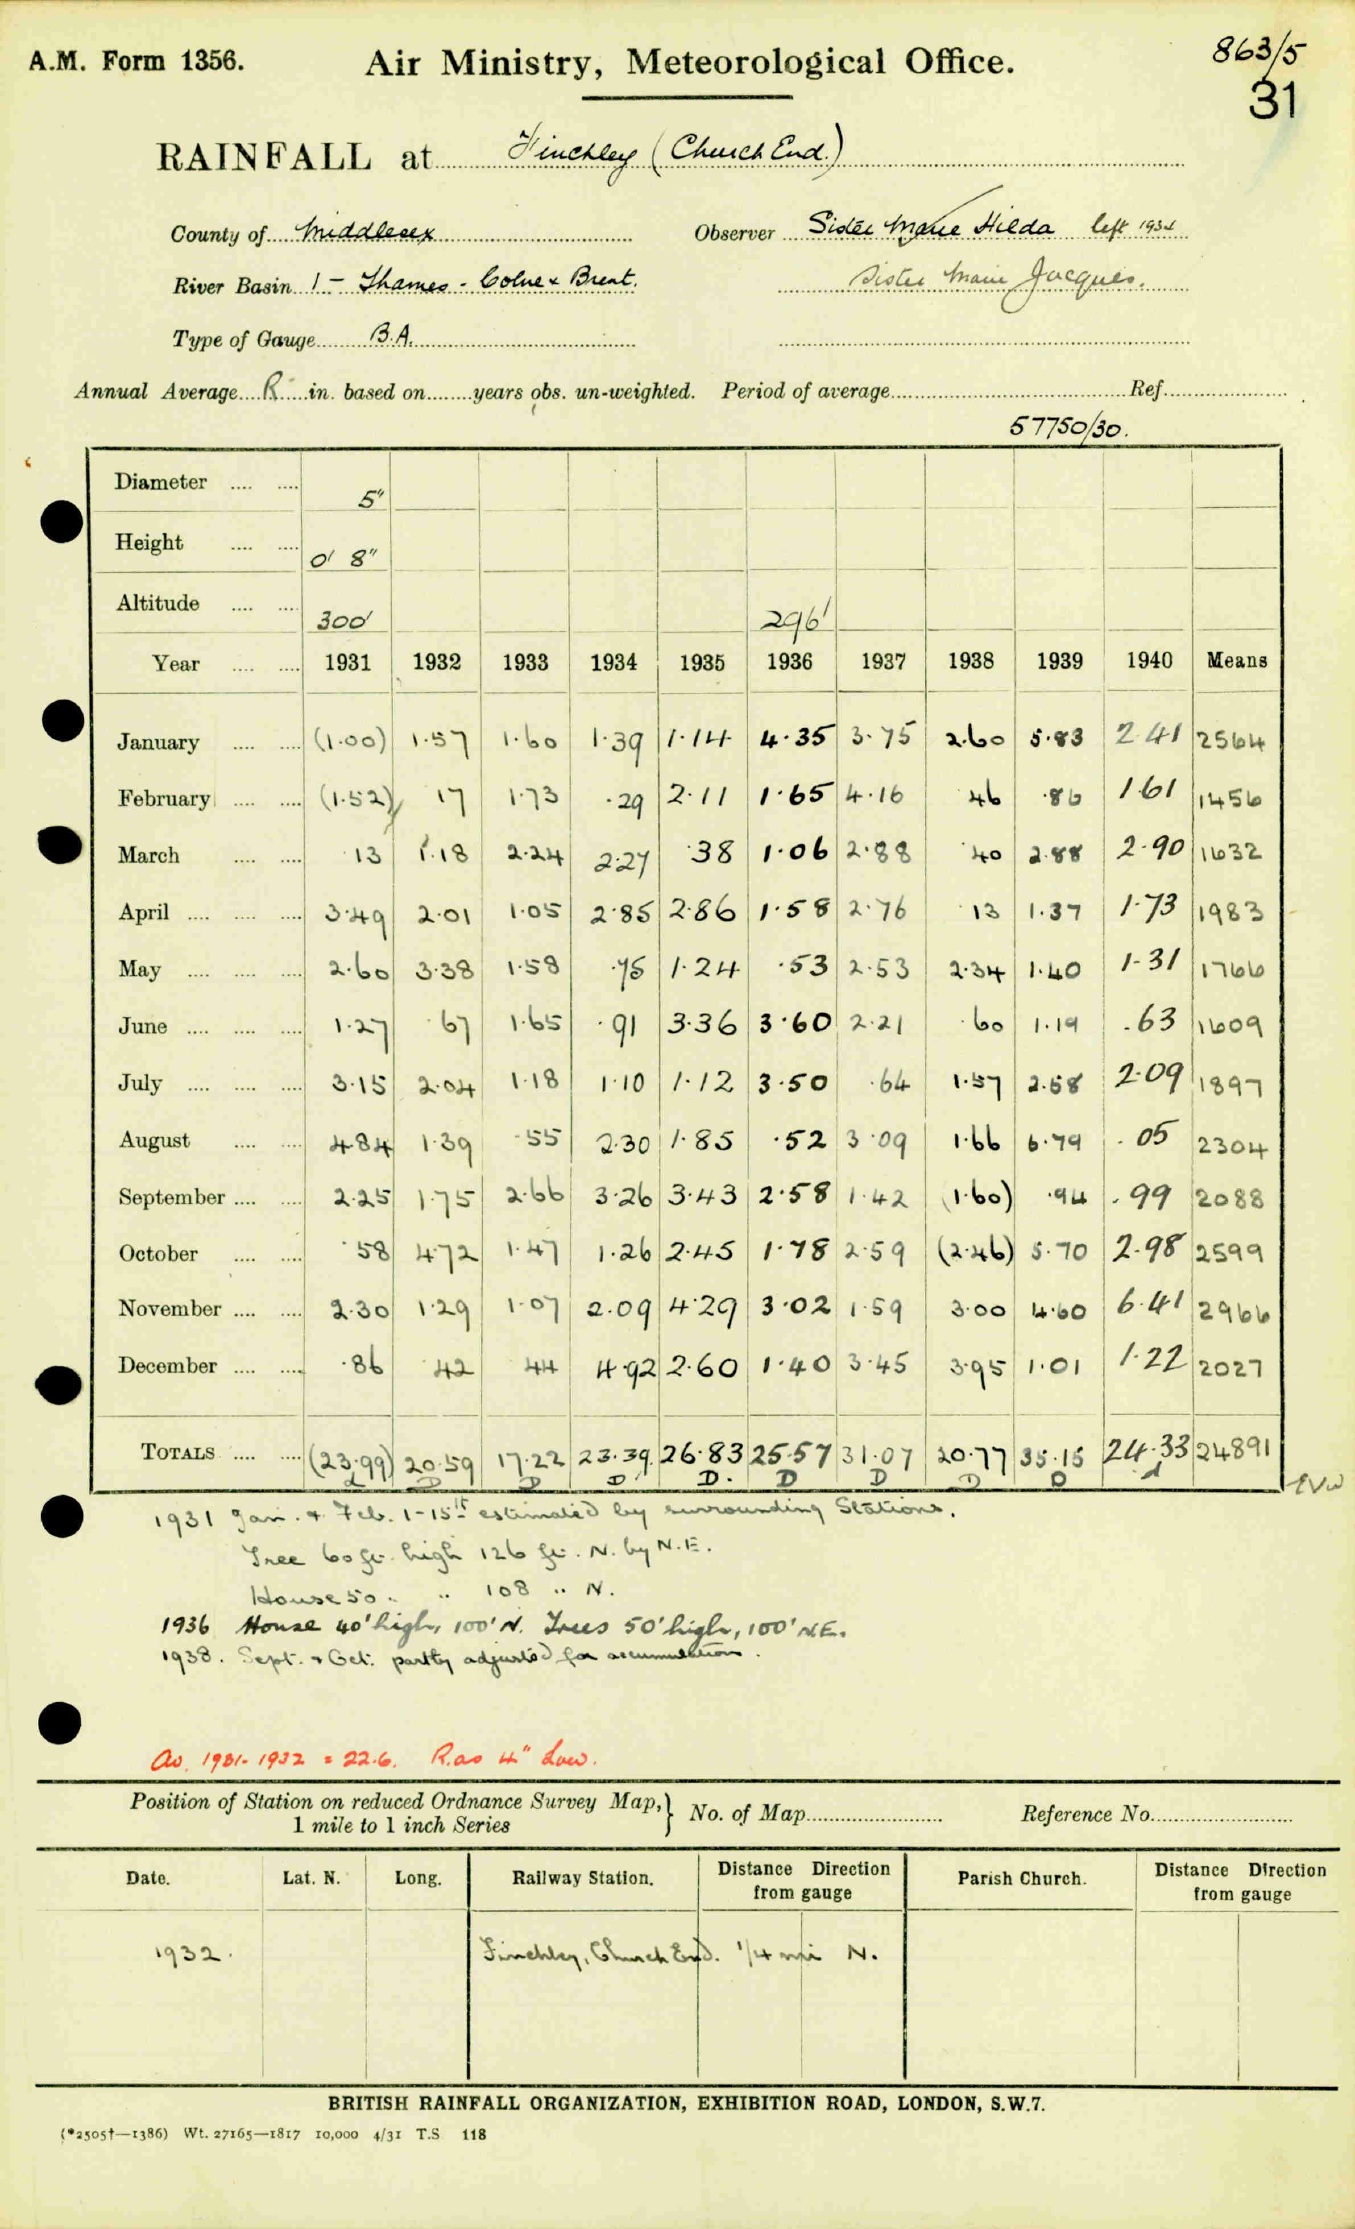 A.M. Form 1356. Air Ministry, Meteorological Office. 863/5
31
RAINFALL at Finchley (Church End.)
County of Middlesex Observer Sister Marie Hilda left 1934
River Basin 1 - Thames - Colne & Brent. Sister Marie Jacques.
Type of Gauge B.A.
Annual Average R in. based on years obs. un-weighted. Period of average Ref.
57750/30.
Diameter 5"
Height 0' 8"
Altitude 300' 296'
Year 1931 1932 1933 1934 1935 1936 1937 1938 1939 1940 Means
January (1.00) 1.57 1.60 1.39 1.14 4.35 3.75 2.60 5.83 2.41 2564
February (1.52) 17 1.73 .29 2.11 1.65 4.16 46 .86 1.61 1456
March 13 1.18 2.24 2.27 .38 1.06 2.88 .40 2.88 2.90 1632
April 3.49 2.01 1.05 2.85 2.86 1.58 2.76 13 1.37 1.73 1983
May 2.60 3.38 1.58 .75 1.24 .53 2.53 2.34 1.40 1.31 1766
June 1.27 .67 1.65 .91 3.36 3.60 2.21 .60 1.19 .63 1609
July 3.15 2.04 1.18 1.10 1.12 3.50 .64 1.57 2.58 2.09 1897
August 4.84 1.39 .55 2.30 1.85 .52 3.09 1.66 6.79 .05 2304
September 2.25 1.75 2.66 3.26 3.43 2.58 1.42 (1.60) .94 .99 2088
October .58 4.72 1.47 1.26 2.45 1.78 2.59 (2.46) 5.70 2.98 2599
November 2.30 1.29 1.07 2.09 4.29 3.02 1.59 3.00 4.60 6.41 2966
December .86 42 44 4.92 2.60 1.40 3.45 3.95 1.01 1.22 2027
TOTALS (23.99) 20.59 17.22 23.39 26.83 25.57 31.07 20.77 35.15 24.33 24891
d D D D D. D D D D d
1931 Jan. & Feb. 1-15th estimated by surrounding Stations.
Tree 60 ft. high 126 ft. N. by N.E.
House 50 " " 108 " N.
1936 House 40' high, 100' N. Trees 50' high, 100' N.E.
1938. Sept. & Oct. partly adjusted for accumulation.
Av. 1931-1932 = 22.6. R. as 4" Low.
Position of Station on reduced Ordnance Survey Map, } No. of Map Reference No.
1 mile to 1 inch Series
Date. Lat. N. Long. Railway Station. Distance Direction from gauge Parish Church. Distance Direction from gauge
1932. Finchley, Church End. 1/4 mi N.
BRITISH RAINFALL ORGANIZATION, EXHIBITION ROAD, LONDON, S.W.7.
(*2505†—1386) Wt. 27165—1817 10,000 4/31 T.S. 118